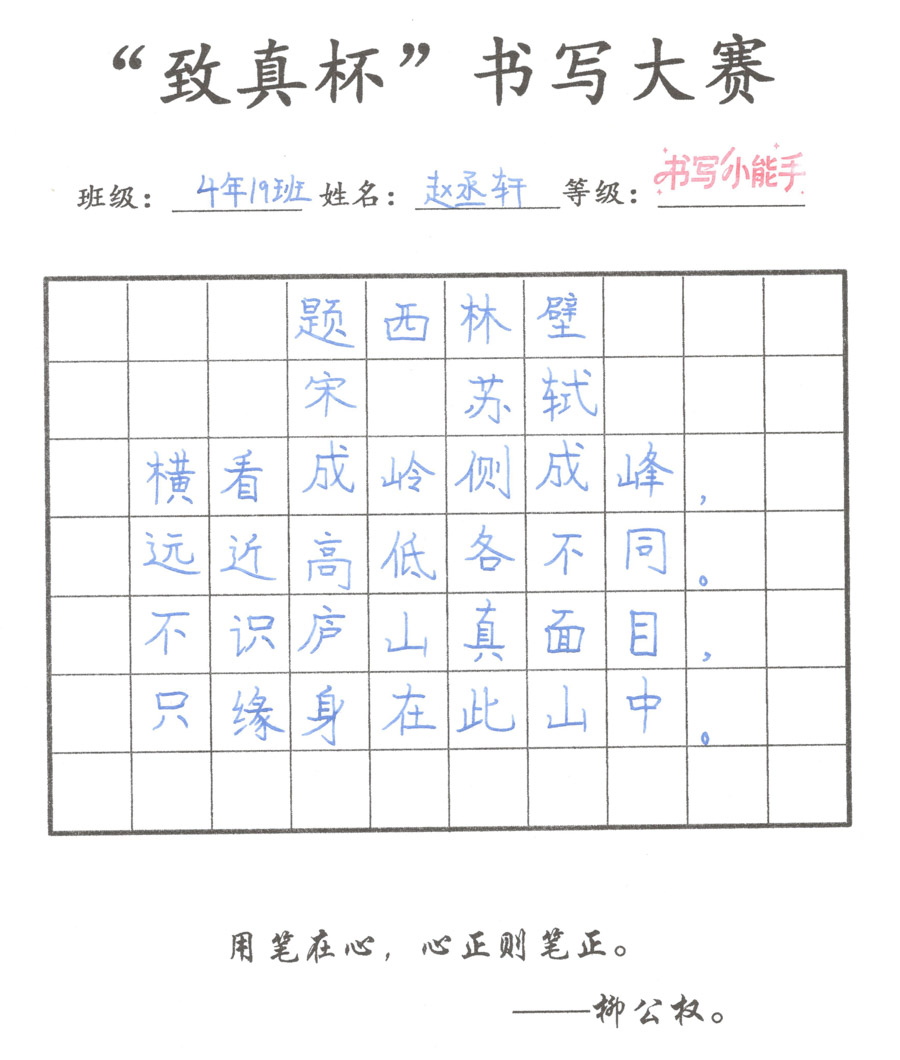 “致真杯”书写大赛
班级：4年19班 姓名：赵丞轩 等级：书写小能手
题西林壁
宋 苏轼
横看成岭侧成峰，
远近高低各不同。
不识庐山真面目，
只缘身在此山中。
用笔在心，心正则笔正。
——柳公权。